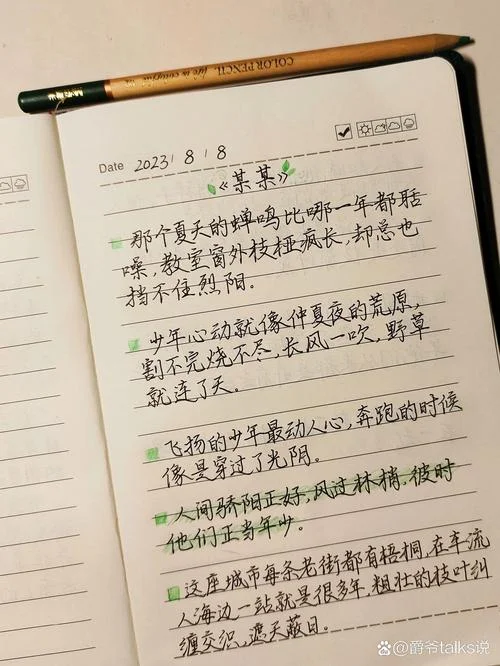 COLOR PENCIL
Date 2023 / 8 / 8
《某某》
那个夏天的蝉鸣比哪一年都聒
噪,教室窗外枝桠疯长,却总也
挡不住烈阳。
少年心动就像仲夏夜的荒原,
割不完烧不尽,长风一吹,野草
就连了天。
飞扬的少年最动人心,奔跑的时候
像是穿过了光阴。
人间骄阳正好,风过林梢,彼时
他们正当年少。
这座城市每条老街都有梧桐,在车流
人海边一站就是很多年,粗壮的枝叶纠
缠交织,遮天蔽日。
@爵爷talks说